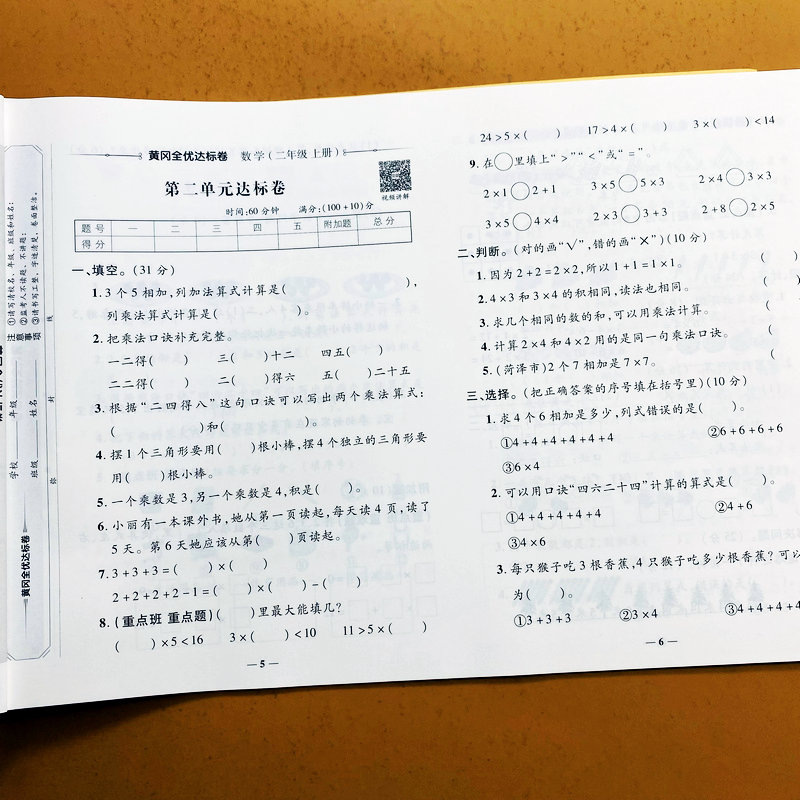 黄冈全优达标卷 数学(二年级上册)
第二单元达标卷
视频讲解
时间:60分钟 满分:(100+10)分
题号 一 二 三 四 五 附加题 总分
得分
一、填空。(31分)
1.3个5相加,列加法算式计算是( ),
列乘法算式计算是( )。
2.把乘法口诀补充完整。
一二得( ) 三( )十二 四五( )
二二得( ) 二( )得六 五( )二十五
3.根据“二四得八”这句口诀可以写出两个乘法算式:
( )和( )。
4.摆1个三角形要用( )根小棒,摆4个独立的三角形要
用( )根小棒。
5.一个乘数是3,另一个乘数是4,积是( )。
6.小丽有一本课外书,她从第一页读起,每天读4页,读了
5天。第6天她应该从第( )页读起。
7.3+3+3=( )×( )
2+2+2+2-1=( )×( )-( )
8.(重点班 重点题)( )里最大能填几?
( )×5<16 3×( )<10 11>5×( )
—5—
24>5×( ) 17>4×( ) 3×( )<14
9.在○里填上“>”“<”或“=”。
2×1○2+1 3×5○5×3 2×4○3×3
3×5○4×4 2×3○3+3 2+8○2×5
二、判断。(对的画“√”,错的画“×”)(10分)
1.因为2+2=2×2,所以1+1=1×1。 ( )
2.4×3和3×4的积相同,读法也相同。 (
3.求几个相同的数的和,可以用乘法计算。 (
4.计算2×4和4×2用的是同一句乘法口诀。 (
5.(菏泽市)2个7相加是7×7。 (
三、选择。(把正确答案的序号填在括号里)(10分)
1.求4个6相加是多少,列式错误的是( )。
①4+4+4+4+4+4 ②6+6+6+6
③6×4
2.可以用口诀“四六二十四”计算的算式是( )。
①4+4+4+4+4 ②4+6
③4×6
3.每只猴子吃3根香蕉,4只猴子吃多少根香蕉?可以
为( )。
①3+3+3 ②3×4 ③4+4+4+4
—6—
注意事项
①请写清校名、年级、班级和姓名;
②监考人不读题、不讲题;
③请书写工整,字迹清楚,卷面整洁。
学校 年级
班级 姓名
弥 封 线
黄冈全优达标卷